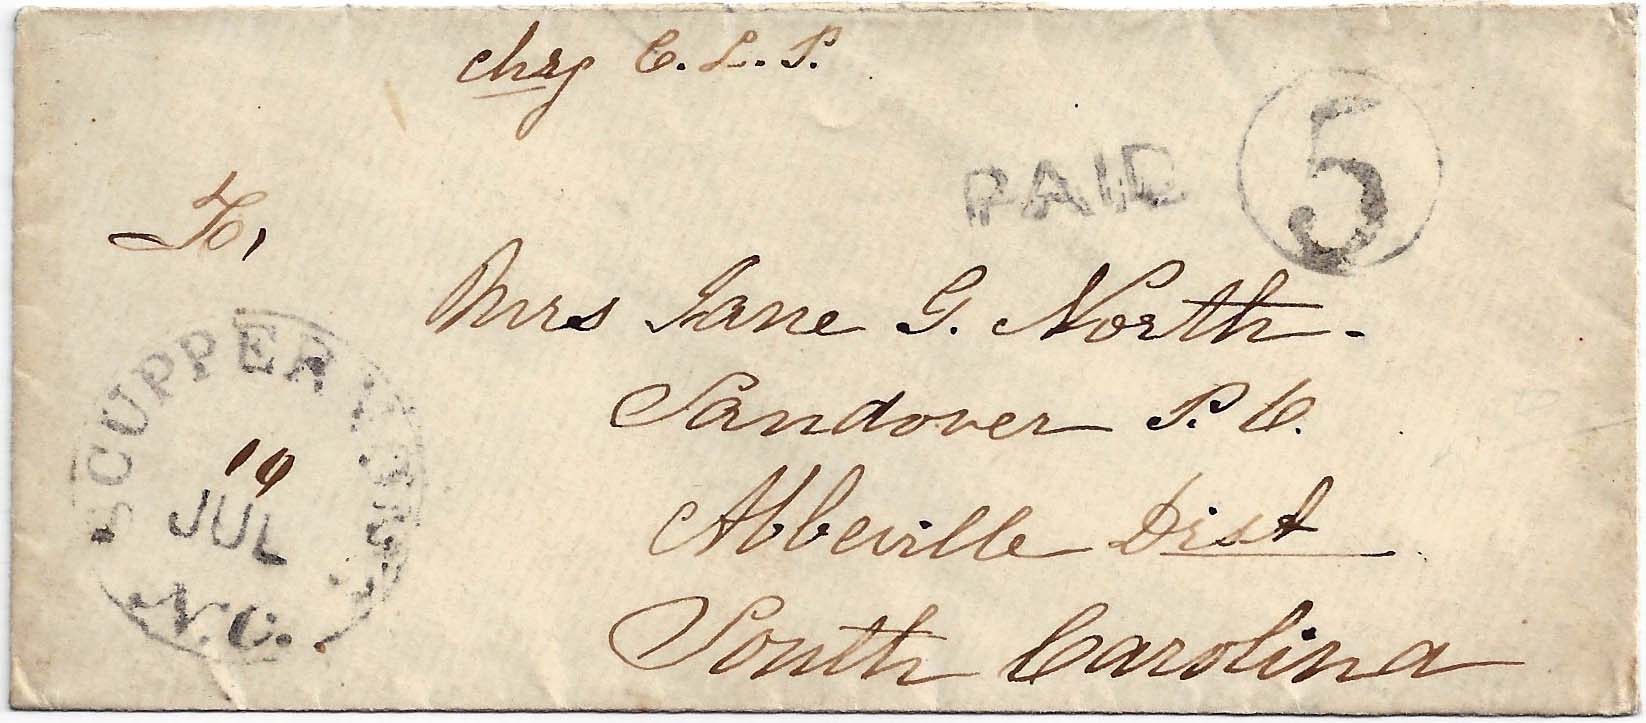 chrg C. L. P.
PAID 5
To,
Mrs Jane G. North -
Sandover P. C.
Abbeville Dist
South Carolina
SCUPPERNONG
19
JUL
N.C.